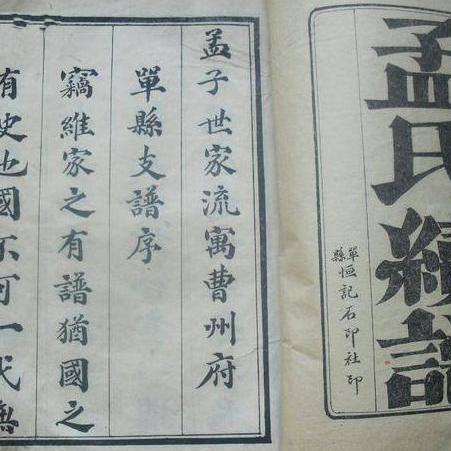 孟氏續譜
單縣恒記石印社印
孟子世家流寓曹州府
單縣支譜序
竊維家之有譜猶國之
有史也國不可一代無